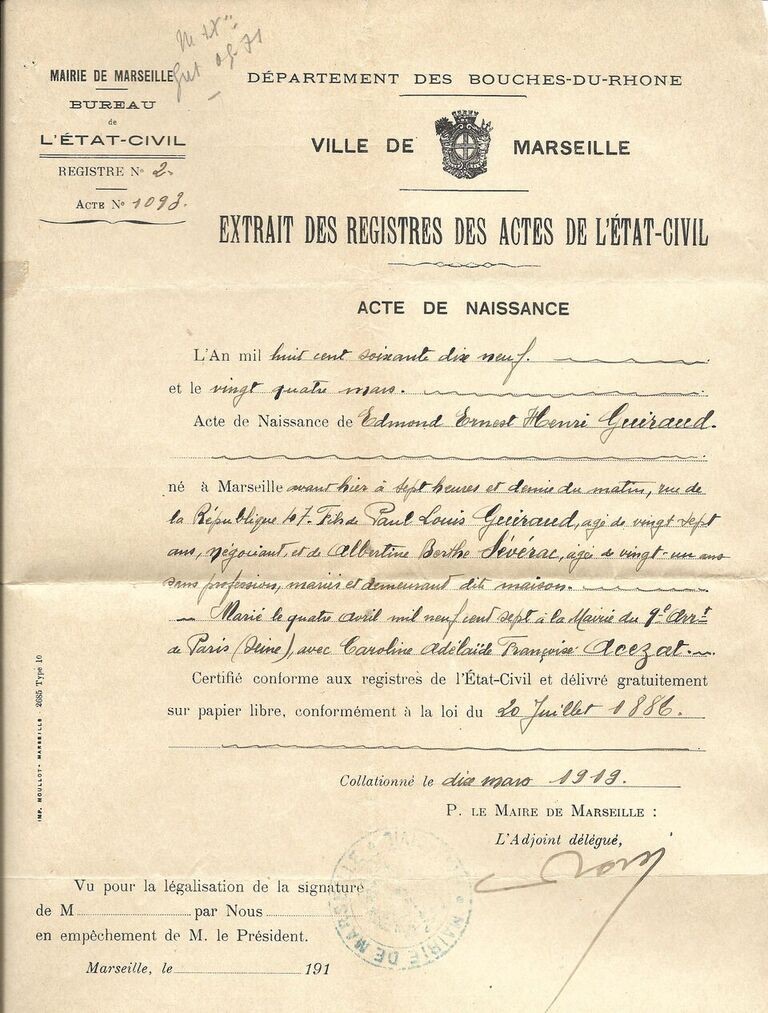 MAIRIE DE MARSEILLE
BUREAU
de
L'ÉTAT-CIVIL
REGISTRE N° 2.
ACTE N° 1093.
DÉPARTEMENT DES BOUCHES-DU-RHONE
VILLE DE MARSEILLE
EXTRAIT DES REGISTRES DES ACTES DE L'ÉTAT-CIVIL
ACTE DE NAISSANCE
L'An mil huit cent soixante dix neuf.
et le vingt quatre mars.
Acte de Naissance de Edmond Ernest Henri Guéraud.
né à Marseille avant hier à sept heures et demie du matin, rue de
la République 47. Fils de Paul Louis Guéraud, agé de vingt sept
ans, négociant, et de Albertine Berthe Sévérac, agée de vingt-un ans
sans profession, mariés et demeurant dite maison.
Marié le quatre avril mil neuf cent sept à la Mairie du 9e Arrt
de Paris (Seine), avec Caroline Adélaïde Françoise Acezat.
Certifié conforme aux registres de l'État-Civil et délivré gratuitement
sur papier libre, conformément à la loi du 20 Juillet 1886.
Collationné le dix mars 1919.
P. LE MAIRE DE MARSEILLE :
L'Adjoint délégué,
MAIRIE DE MARSEILLE
Vu pour la légalisation de la signature
de M par Nous
en empêchement de M. le Président.
Marseille, le 191
IMP. MOULLOT - MARSEILLE 2685 Type 10